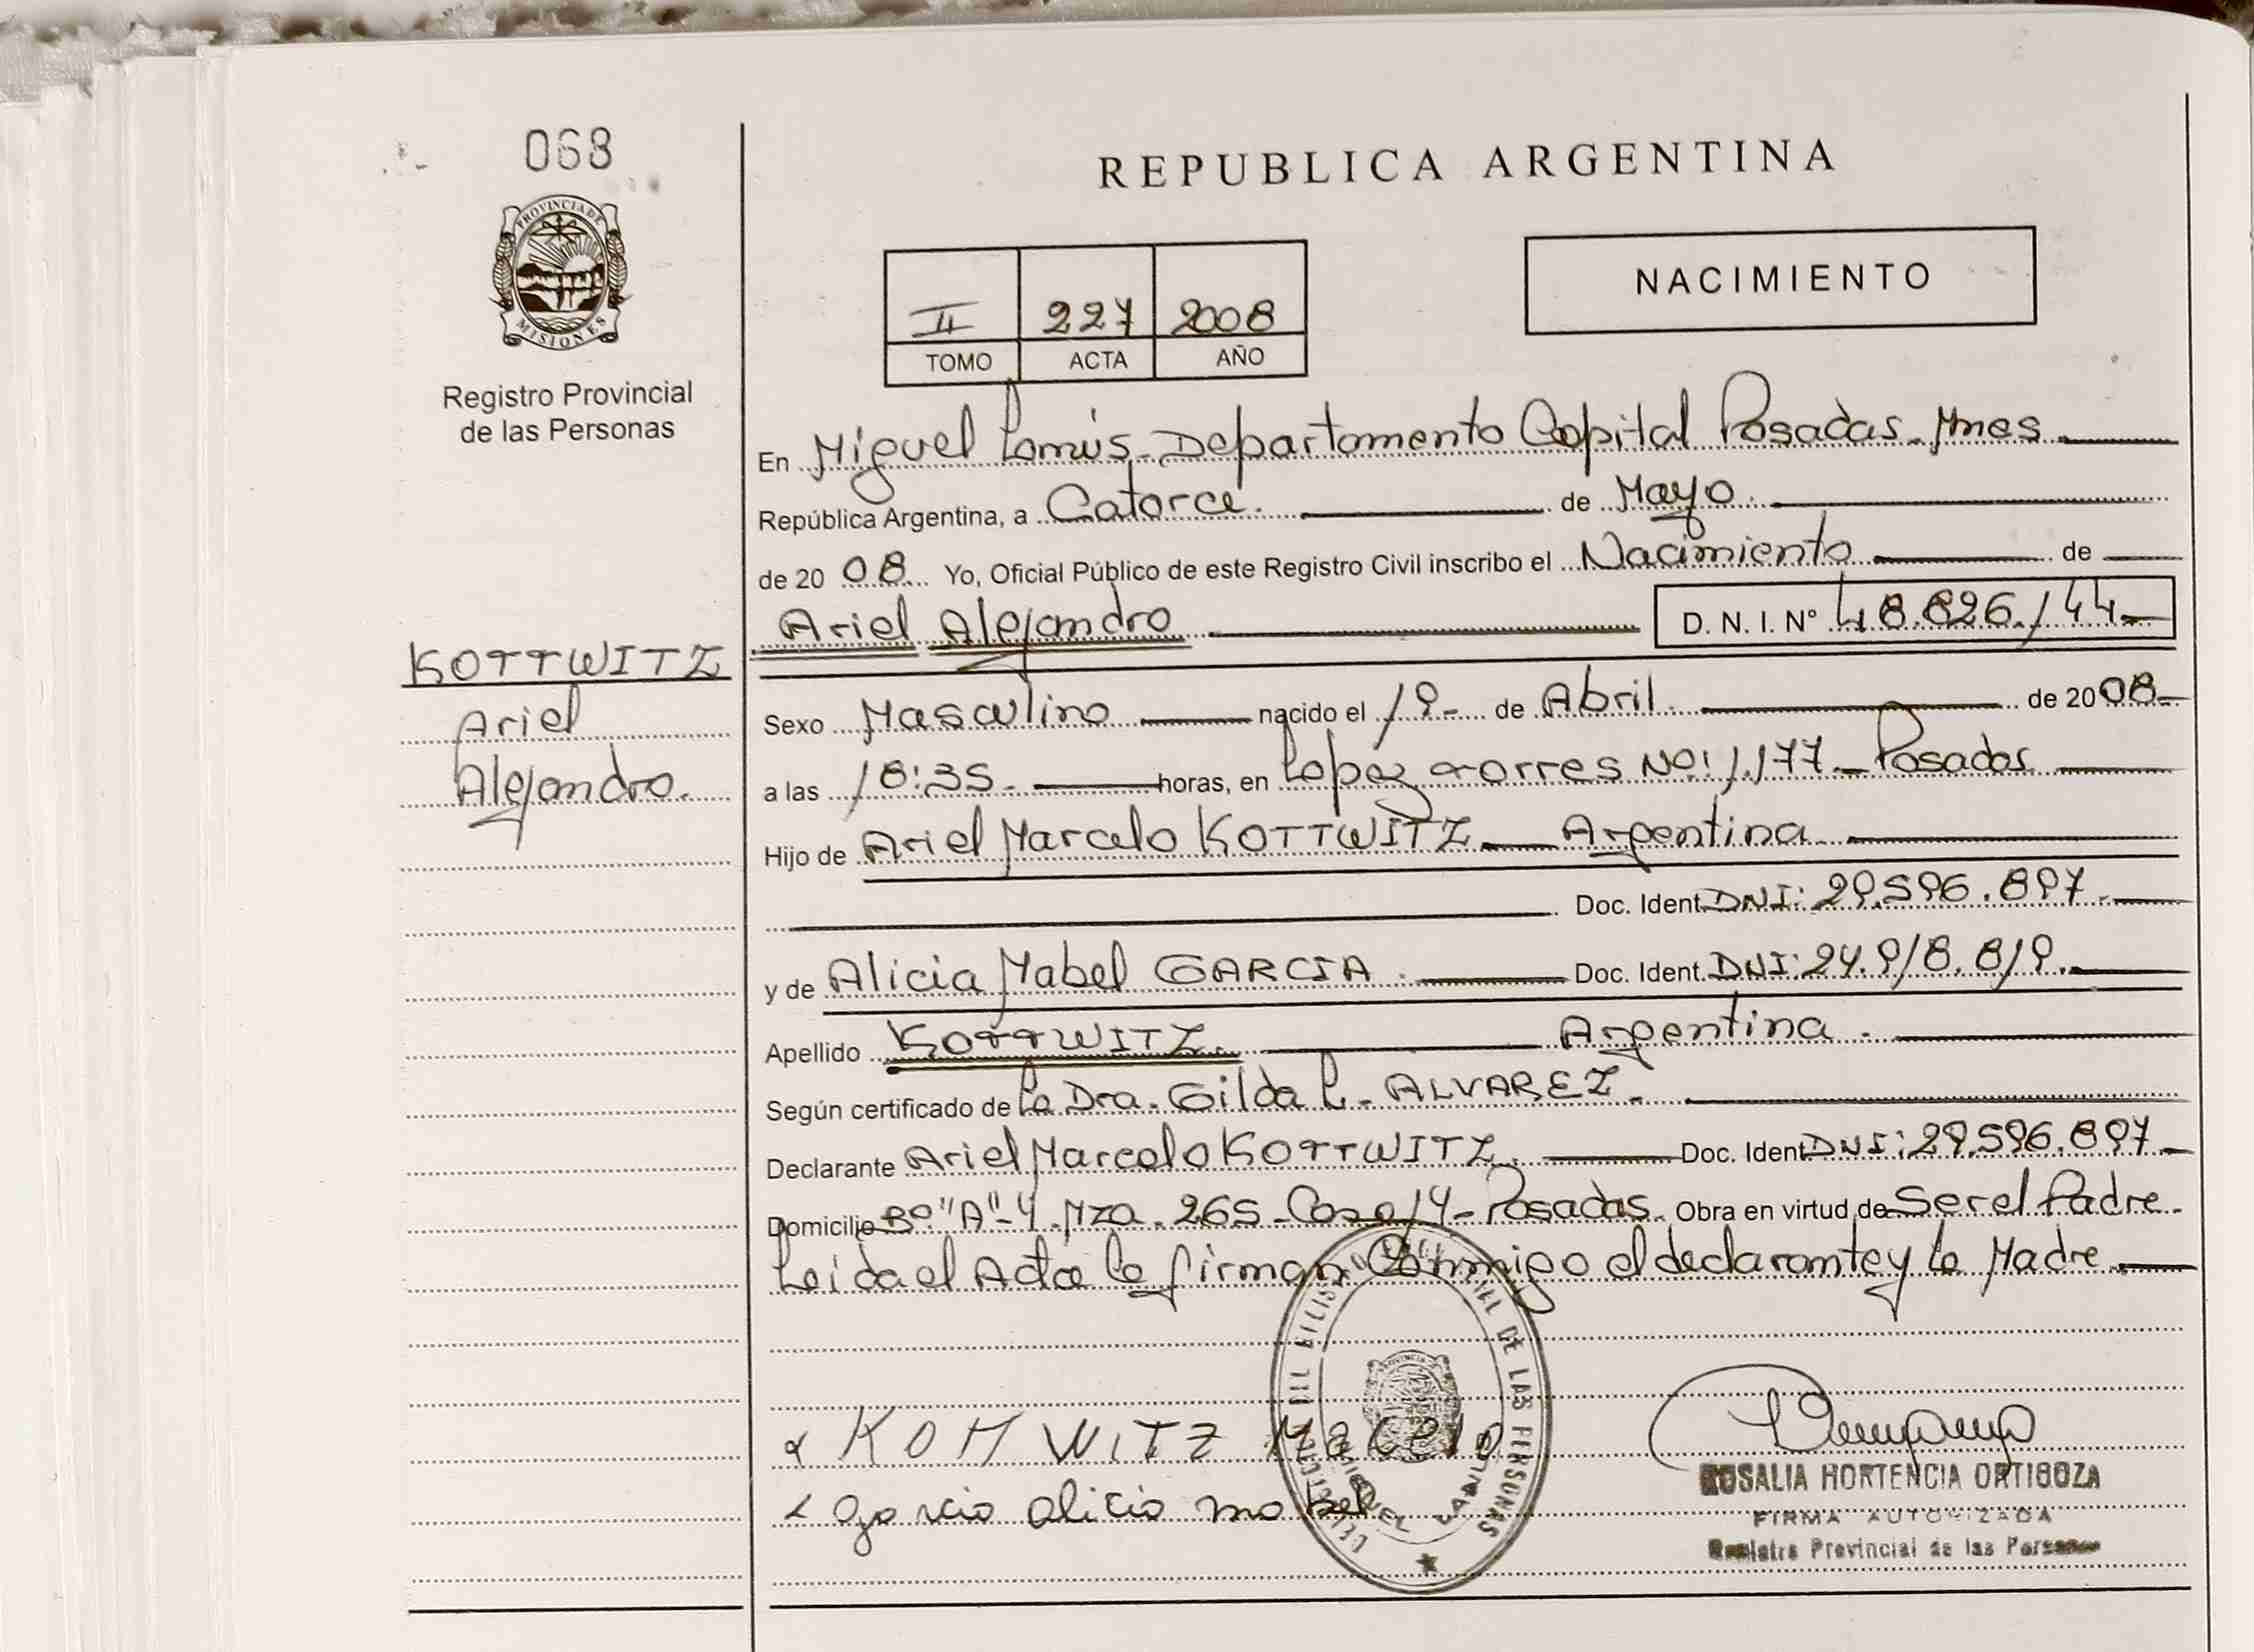 068
PROVINCIA DE
MISIONES
Registro Provincial
de las Personas
KOTTWITZ
Ariel
Alejandro.
REPUBLICA ARGENTINA
NACIMIENTO
II 227 2008
TOMO ACTA AÑO
En Miguel Lanús - Departamento Capital Posadas - Mnes
República Argentina, a Catorce. de Mayo.
de 20 08. Yo, Oficial Público de este Registro Civil inscribo el Nacimiento de
Ariel Alejandro D. N. I. Nº 48.826.144-
Sexo Masculino nacido el 19- de Abril. de 2008-
a las 18:35. horas, en Lopez Torres Nº: 1.177 - Posadas
Hijo de Ariel Marcelo KOTTWITZ Argentina
Doc. Ident. DNI: 29.596.897.
y de Alicia Mabel GARCIA. Doc. Ident. DNI: 24.918.819.
Apellido KOTTWITZ. Argentina.
Según certificado de la Dra. Gilda L. ALVAREZ.
Declarante Ariel Marcelo KOTTWITZ. Doc. Ident DNI: 29.596.897
Domicilio Bº "A"-4. Mza. 265 - Casa 14 - Posadas. Obra en virtud de Ser el Padre.
Leida el Acta la firman Conmigo el declarante y la Madre.
KOTTWITZ Marcelo
Garcia alicia mabel
DE LAS PERSONAS
MIGUEL LANUS
ROSALIA HORTENCIA ORTIGOZA
FIRMA AUTORIZADA
Registro Provincial de las Personas